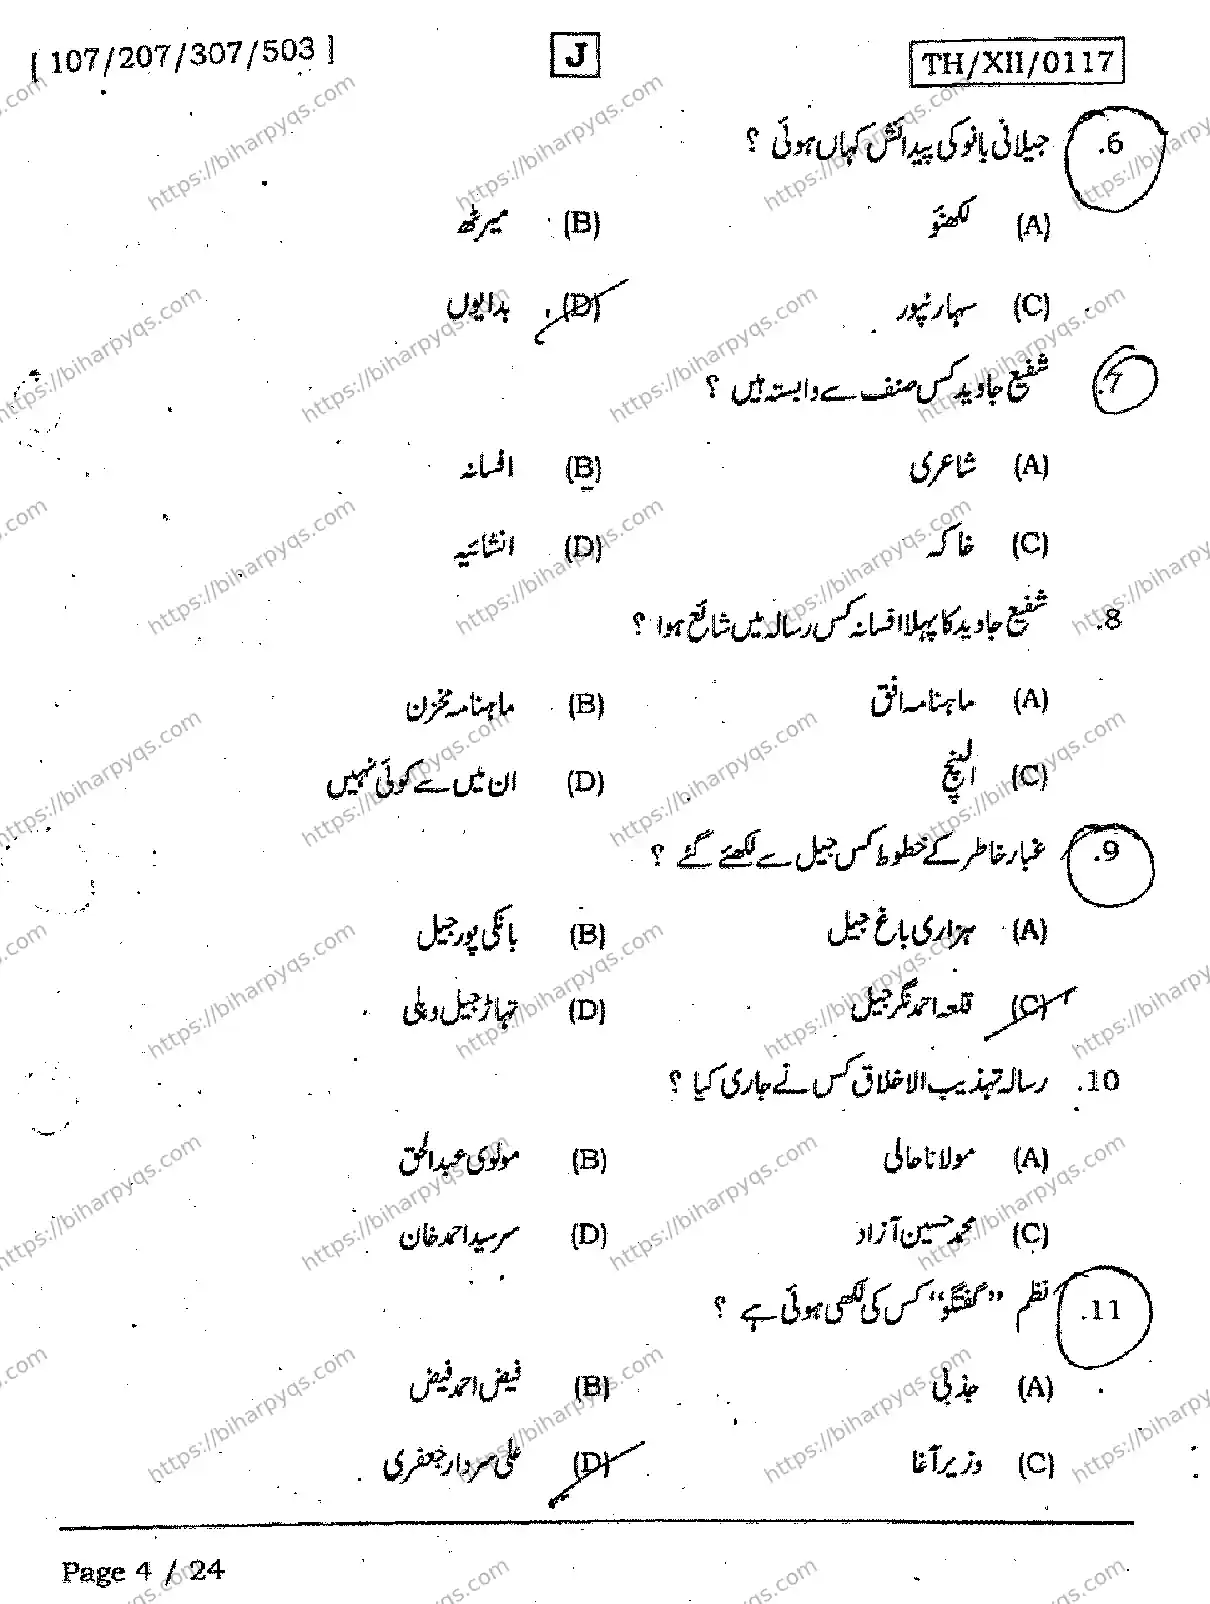 [ 107/207/307/503 ] J TH/XII/0117
6. جیلانی بانو کی پیدائش کہاں ہوئی ؟
(A) لکھنؤ (B) میرٹھ
(C) سہارنپور (D) بدایوں
7. شفیع جاوید کس صنف سے وابستہ ہیں ؟
(A) شاعری (B) افسانہ
(C) خاکہ (D) انشائیہ
8. شفیع جاوید کا پہلا افسانہ کس رسالہ میں شائع ہوا ؟
(A) ماہنامہ افق (B) ماہنامہ مخزن
(C) الپنچ (D) ان میں سے کوئی نہیں
9. غبار خاطر کے خطوط کس جیل سے لکھئے گئے ؟
(A) ہزاری باغ جیل (B) بانکی پور جیل
(C) قلعہ احمد نگر جیل (D) تہاڑ جیل دہلی
10. رسالہ تہذیب الاخلاق کس نے جاری کیا ؟
(A) مولانا حالی (B) مولوی عبدالحق
(C) محمد حسین آزاد (D) سر سید احمد خان
11. نظم “گفتگو” کس کی لکھی ہوئی ہے ؟
(A) جذبی (B) فیض احمد فیض
(C) وزیر آغا (D) علی سردار جعفری
Page 4 / 24
https://biharpyqs.com